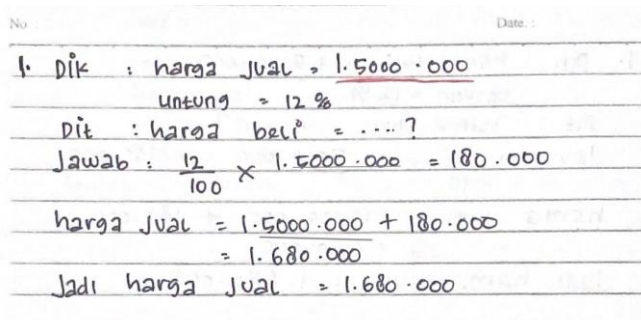 No.: Date.:
1. Dik : harga jual = 1.5000.000
untung = 12 %
Dit : harga beli = ....?
Jawab : 12/100 × 1.5000.000 = 180.000
harga jual = 1.5000.000 + 180.000
= 1.680.000
Jadi harga jual = 1.680.000